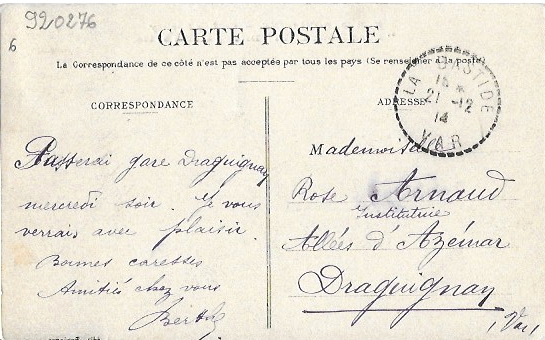 920276
6
CARTE POSTALE
La Correspondance de ce côté n'est pas acceptée par tous les pays (Se renseigner à la poste)
CORRESPONDANCE
ADRESSE
LA BASTIDE
21-12
14
VAR
Passerai gare Draguignan
mercredi soir. Je vous
verrais avec plaisir.
Bonnes caresses
Amitiés chez vous
Berthe
Mademoise
Rose Arnaud
Institutrice
Allées d'Azémar
Draguignan
(Var)